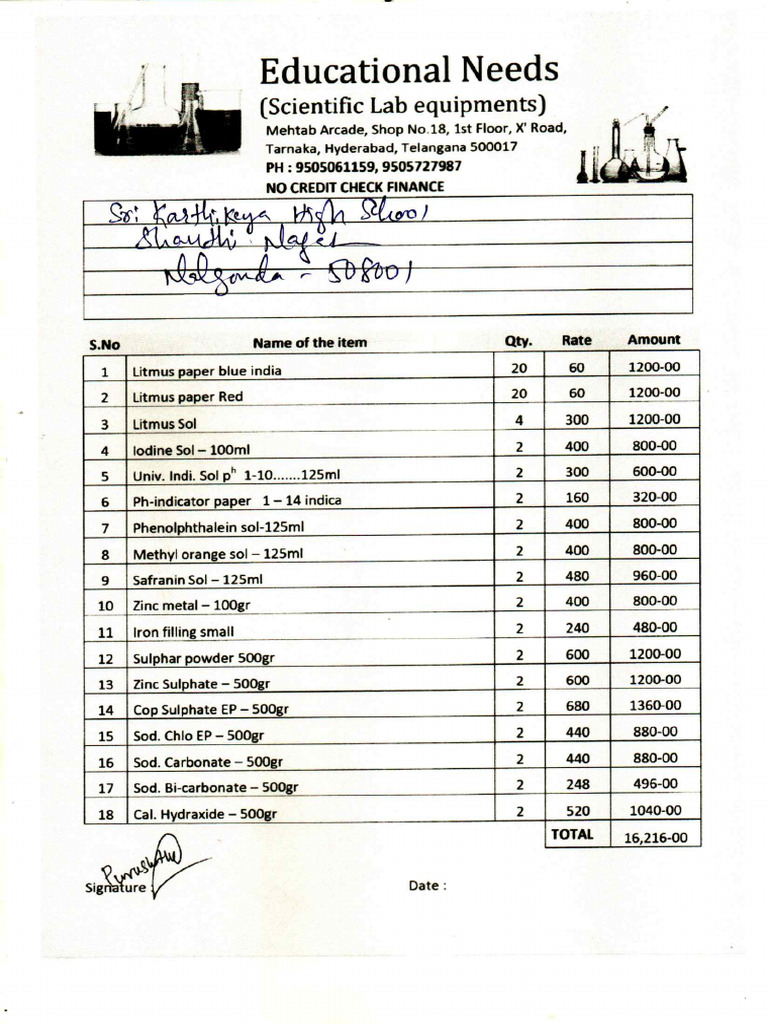 Educational Needs
(Scientific Lab equipments)
Mehtab Arcade, Shop No.18, 1st Floor, X' Road,
Tarnaka, Hyderabad, Telangana 500017
PH : 9505061159, 9505727987
NO CREDIT CHECK FINANCE
Sri Karthikeya High School
Shandhi Nagar
Nalgonda - 508001
S.No Name of the item Qty. Rate Amount
1 Litmus paper blue india 20 60 1200-00
2 Litmus paper Red 20 60 1200-00
3 Litmus Sol 4 300 1200-00
4 Iodine Sol – 100ml 2 400 800-00
5 Univ. Indi. Sol pʰ 1-10.......125ml 2 300 600-00
6 Ph-indicator paper 1 – 14 indica 2 160 320-00
7 Phenolphthalein sol-125ml 2 400 800-00
8 Methyl orange sol – 125ml 2 400 800-00
9 Safranin Sol – 125ml 2 480 960-00
10 Zinc metal – 100gr 2 400 800-00
11 Iron filling small 2 240 480-00
12 Sulphar powder 500gr 2 600 1200-00
13 Zinc Sulphate – 500gr 2 600 1200-00
14 Cop Sulphate EP – 500gr 2 680 1360-00
15 Sod. Chlo EP – 500gr 2 440 880-00
16 Sod. Carbonate – 500gr 2 440 880-00
17 Sod. Bi-carbonate – 500gr 2 248 496-00
18 Cal. Hydraxide – 500gr 2 520 1040-00
TOTAL 16,216-00
Signature :
Date :